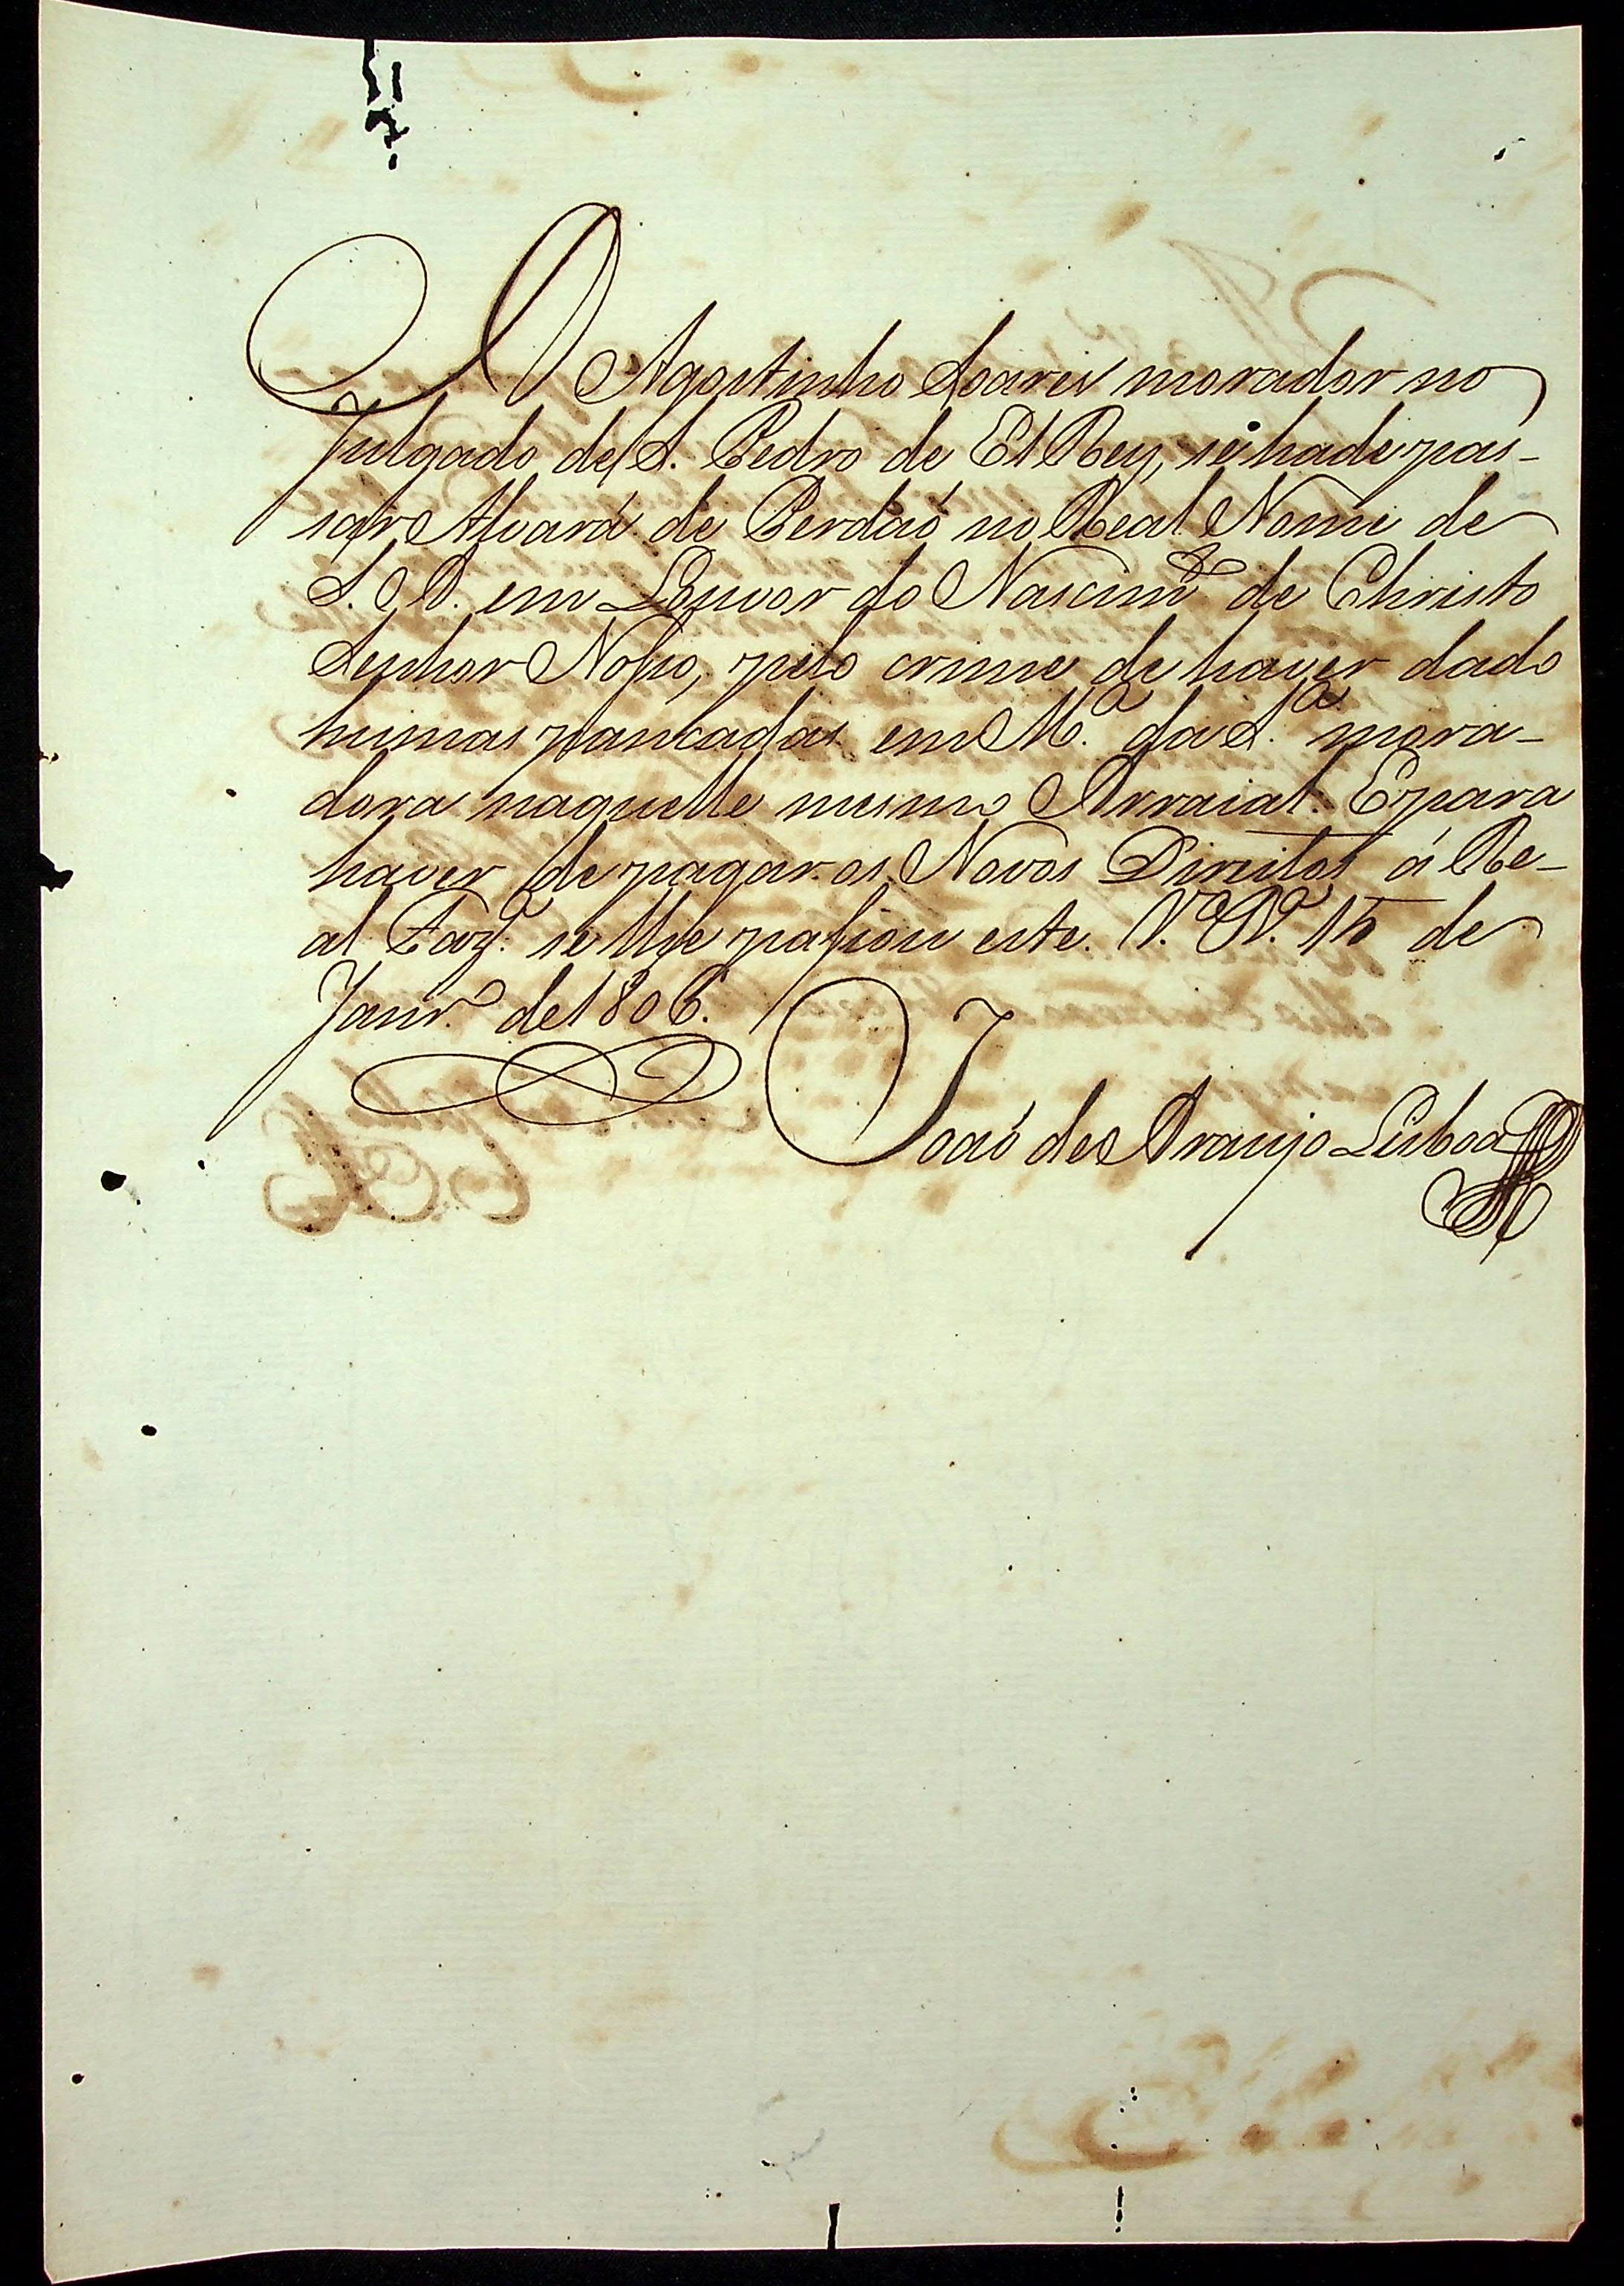 A Agostinho Soares morador no
Julgado de S. Pedro de El Rey, se hade pas-
sar Alvará de Perdaõ no Real Nome de
S. A. R. em Louvor do Nascim.to de Christo
Senhor Nosso, pelo crime de haver dado
humas pancadas em M.a da S.a mora-
dora naquelle mesmo Arraial. E para
haver de pagar os Novos Direitos á Re-
al Faz.a se lhe passou este. V.a B.a 15 de
Janr.o de 1806.
Joaõ de Araujo Lisboa